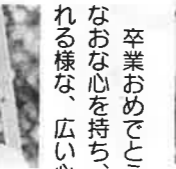 卒業おめでとう
なおな心を持ち、
れる様な、広い心